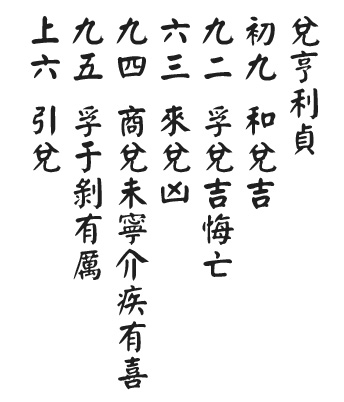 兌亨利貞
初九 和兌吉
九二 孚兌吉悔亡
六三 來兌凶
九四 商兌未寧介疾有喜
九五 孚于剝有厲
上六 引兌